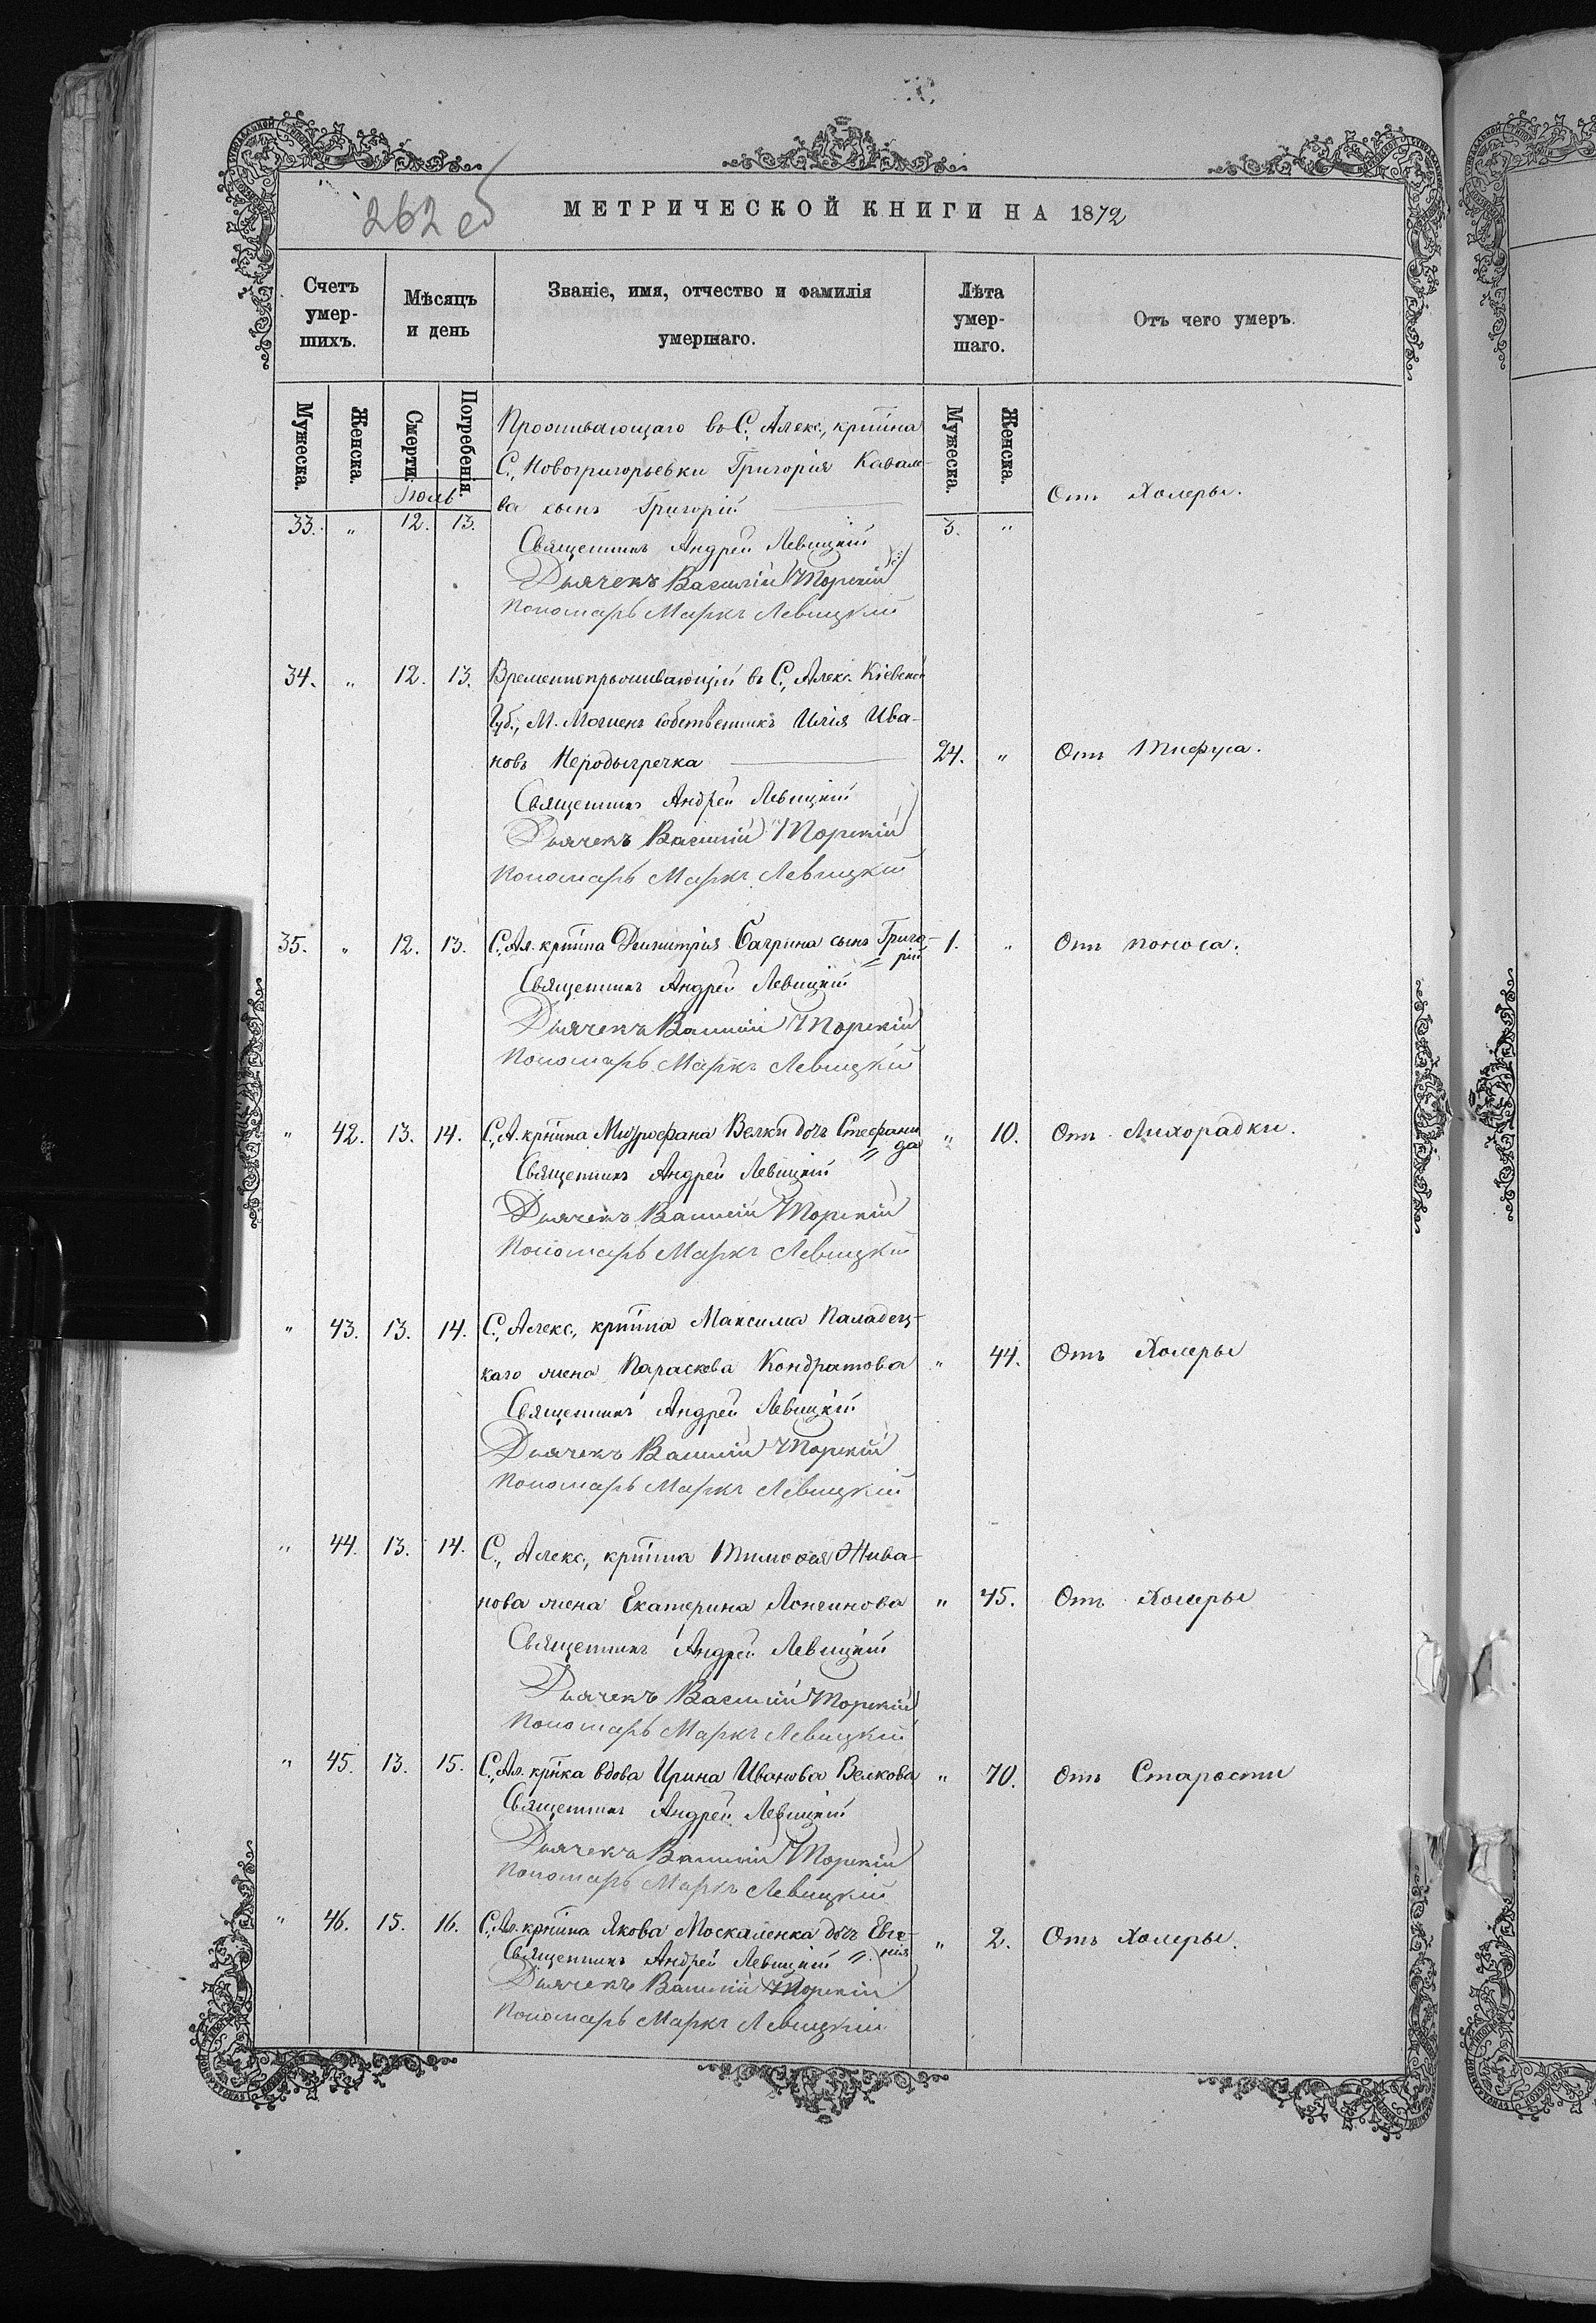 262 об
МЕТРИЧЕСКОЙ КНИГИ НА 1872
Счетъ умер-шихъ.
Мѣсяцъ и день
Званіе, имя, отчество и фамилія умершаго.
Лѣта умер-шаго.
Отъ чего умеръ.
Мужеска.
Женска.
Смерти.
Погребенія.
Мужеска.
Женска.
Іюль
Проживающаго въ С., Алекс., кртіина
С., Новогригорьевки Григорія Кавале-
33. " 12. 13. ва сынъ Григорій 3. " Отъ Холеры.
Священникъ Андрей Левицкій
Дьячекъ Василій Торскій
Пономарь Маркъ Левицкій
34. " 12. 13. Временнопроживающій въ С., Алекс. Кіевской
Губ., М. Мошенъ собственникъ Илія Ива-
новъ Неродыгречка 24. " Отъ Тифуса.
Священникъ Андрей Левицкій
Дьячекъ Василій Торскій
Пономарь Маркъ Левицкій
35. " 12. 13. С., Ал. кртіина Димитрія Багрина сынъ Григо- 1. " Отъ поноса.
рій
Священникъ Андрей Левицкій
Дьячекъ Василій Торскій
Пономарь Маркъ Левицкій
" 42. 13. 14. С., А. кртіина Митрофана Велки дочь Стефани " 10. Отъ Лихорадки.
да
Священникъ Андрей Левицкій
Дьячекъ Василій Торскій
Пономарь Маркъ Левицкій
" 43. 13. 14. С., Алекс., кртіина Максима Паладец-
каго жена Параскева Кондратова " 44. Отъ Холеры
Священникъ Андрей Левицкій
Дьячекъ Василій Торскій
Пономарь Маркъ Левицкій
" 44. 13. 14. С., Алекс., кртіина Тимофея Жива-
нова жена Екатерина Лонгинова " 45. Отъ Холеры
Священникъ Андрей Левицкій
Дьячекъ Василій Торскій
Пономарь Маркъ Левицкій
" 45. 13. 15. С., Ал. кртнка вдова Ирина Иванова Велкова " 70. Отъ Старости
Священникъ Андрей Левицкій
Дьячекъ Василій Торскій
Пономарь Маркъ Левицкій
" 46. 15. 16. С., Ал. кртіина Якова Москаленка дочь Евге- " 2. Отъ Холеры.
нія
Священникъ Андрей Левицкій
Дьячекъ Василій Торскій
Пономарь Маркъ Левицкій